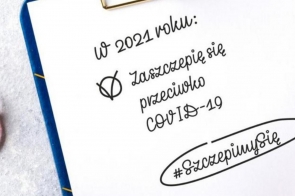 W 2021 roku:
Zaszczepię się
przeciwko
COVID-19
#SzczepimySię